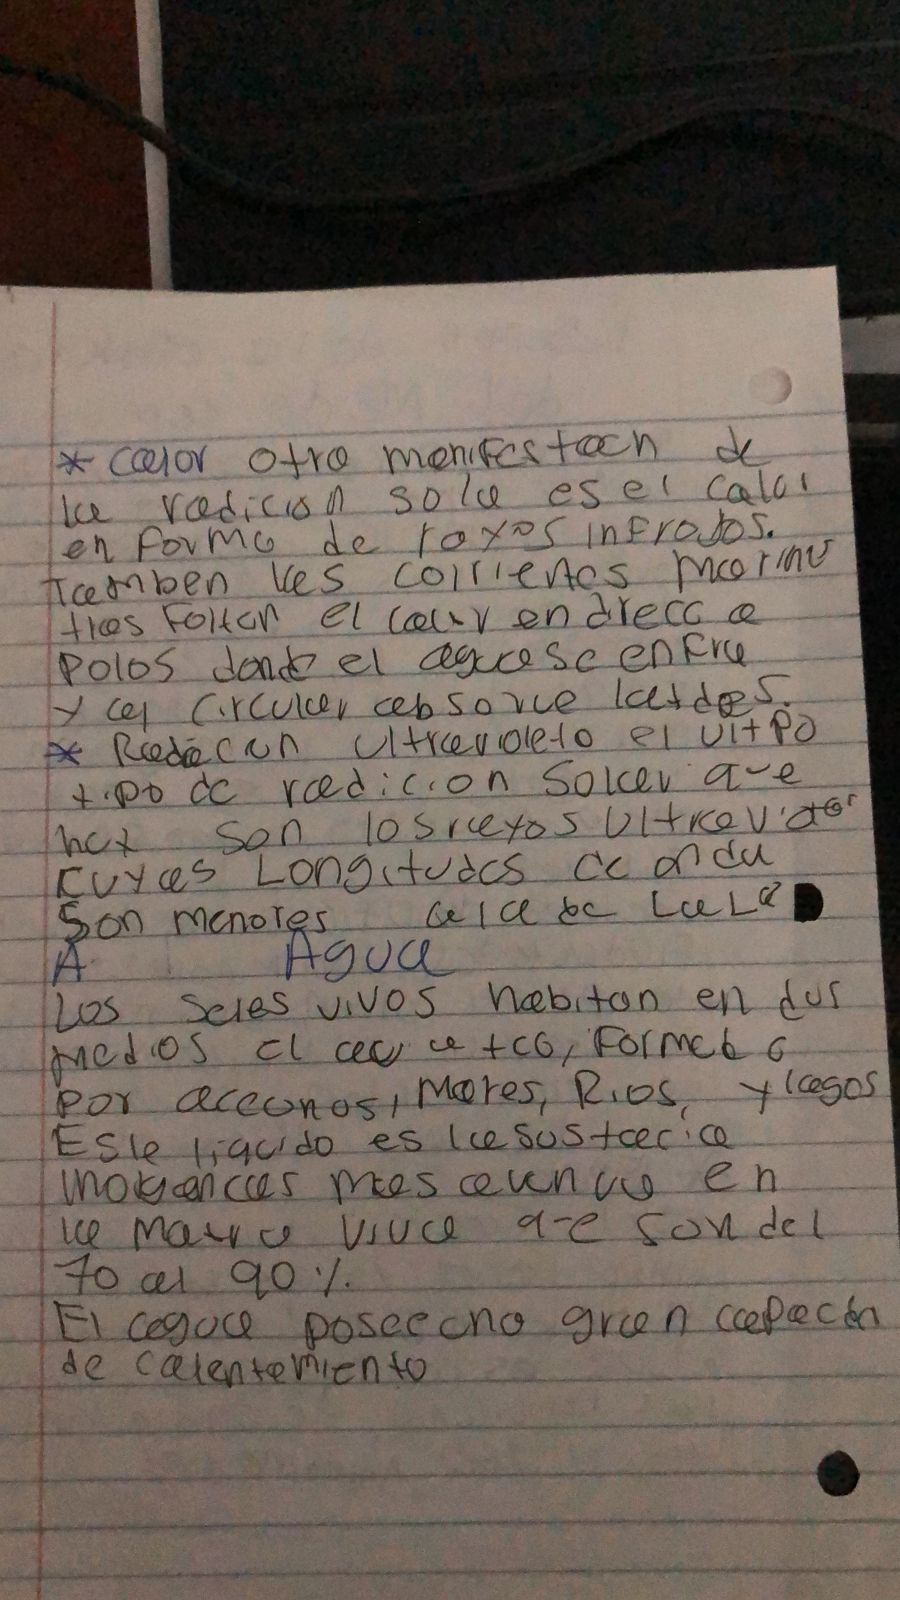 * calor otra manifestacn de
la radicion sola es el calor
en forma de rayos infrojos.
Tamben las corrientes marinv
tras Foltan el calor en direcc a
Polos donde el agua se enfra
y al circular absorve
* Radiacun ultravoleto el ultpo
tipo de radicion solar que
hay son los rayos ultrav
cuyas Longitudes de onda
son menores a la de La Lu
A Agua
Los seres vivos habitan en dos
medios el acuatco, Formado
por oceonos, Mares, Rios, y lagos
Este liquido es la sustacia
mas en
la viva que son del
70 al 90 %.
El agua posee gran
de calentamiento